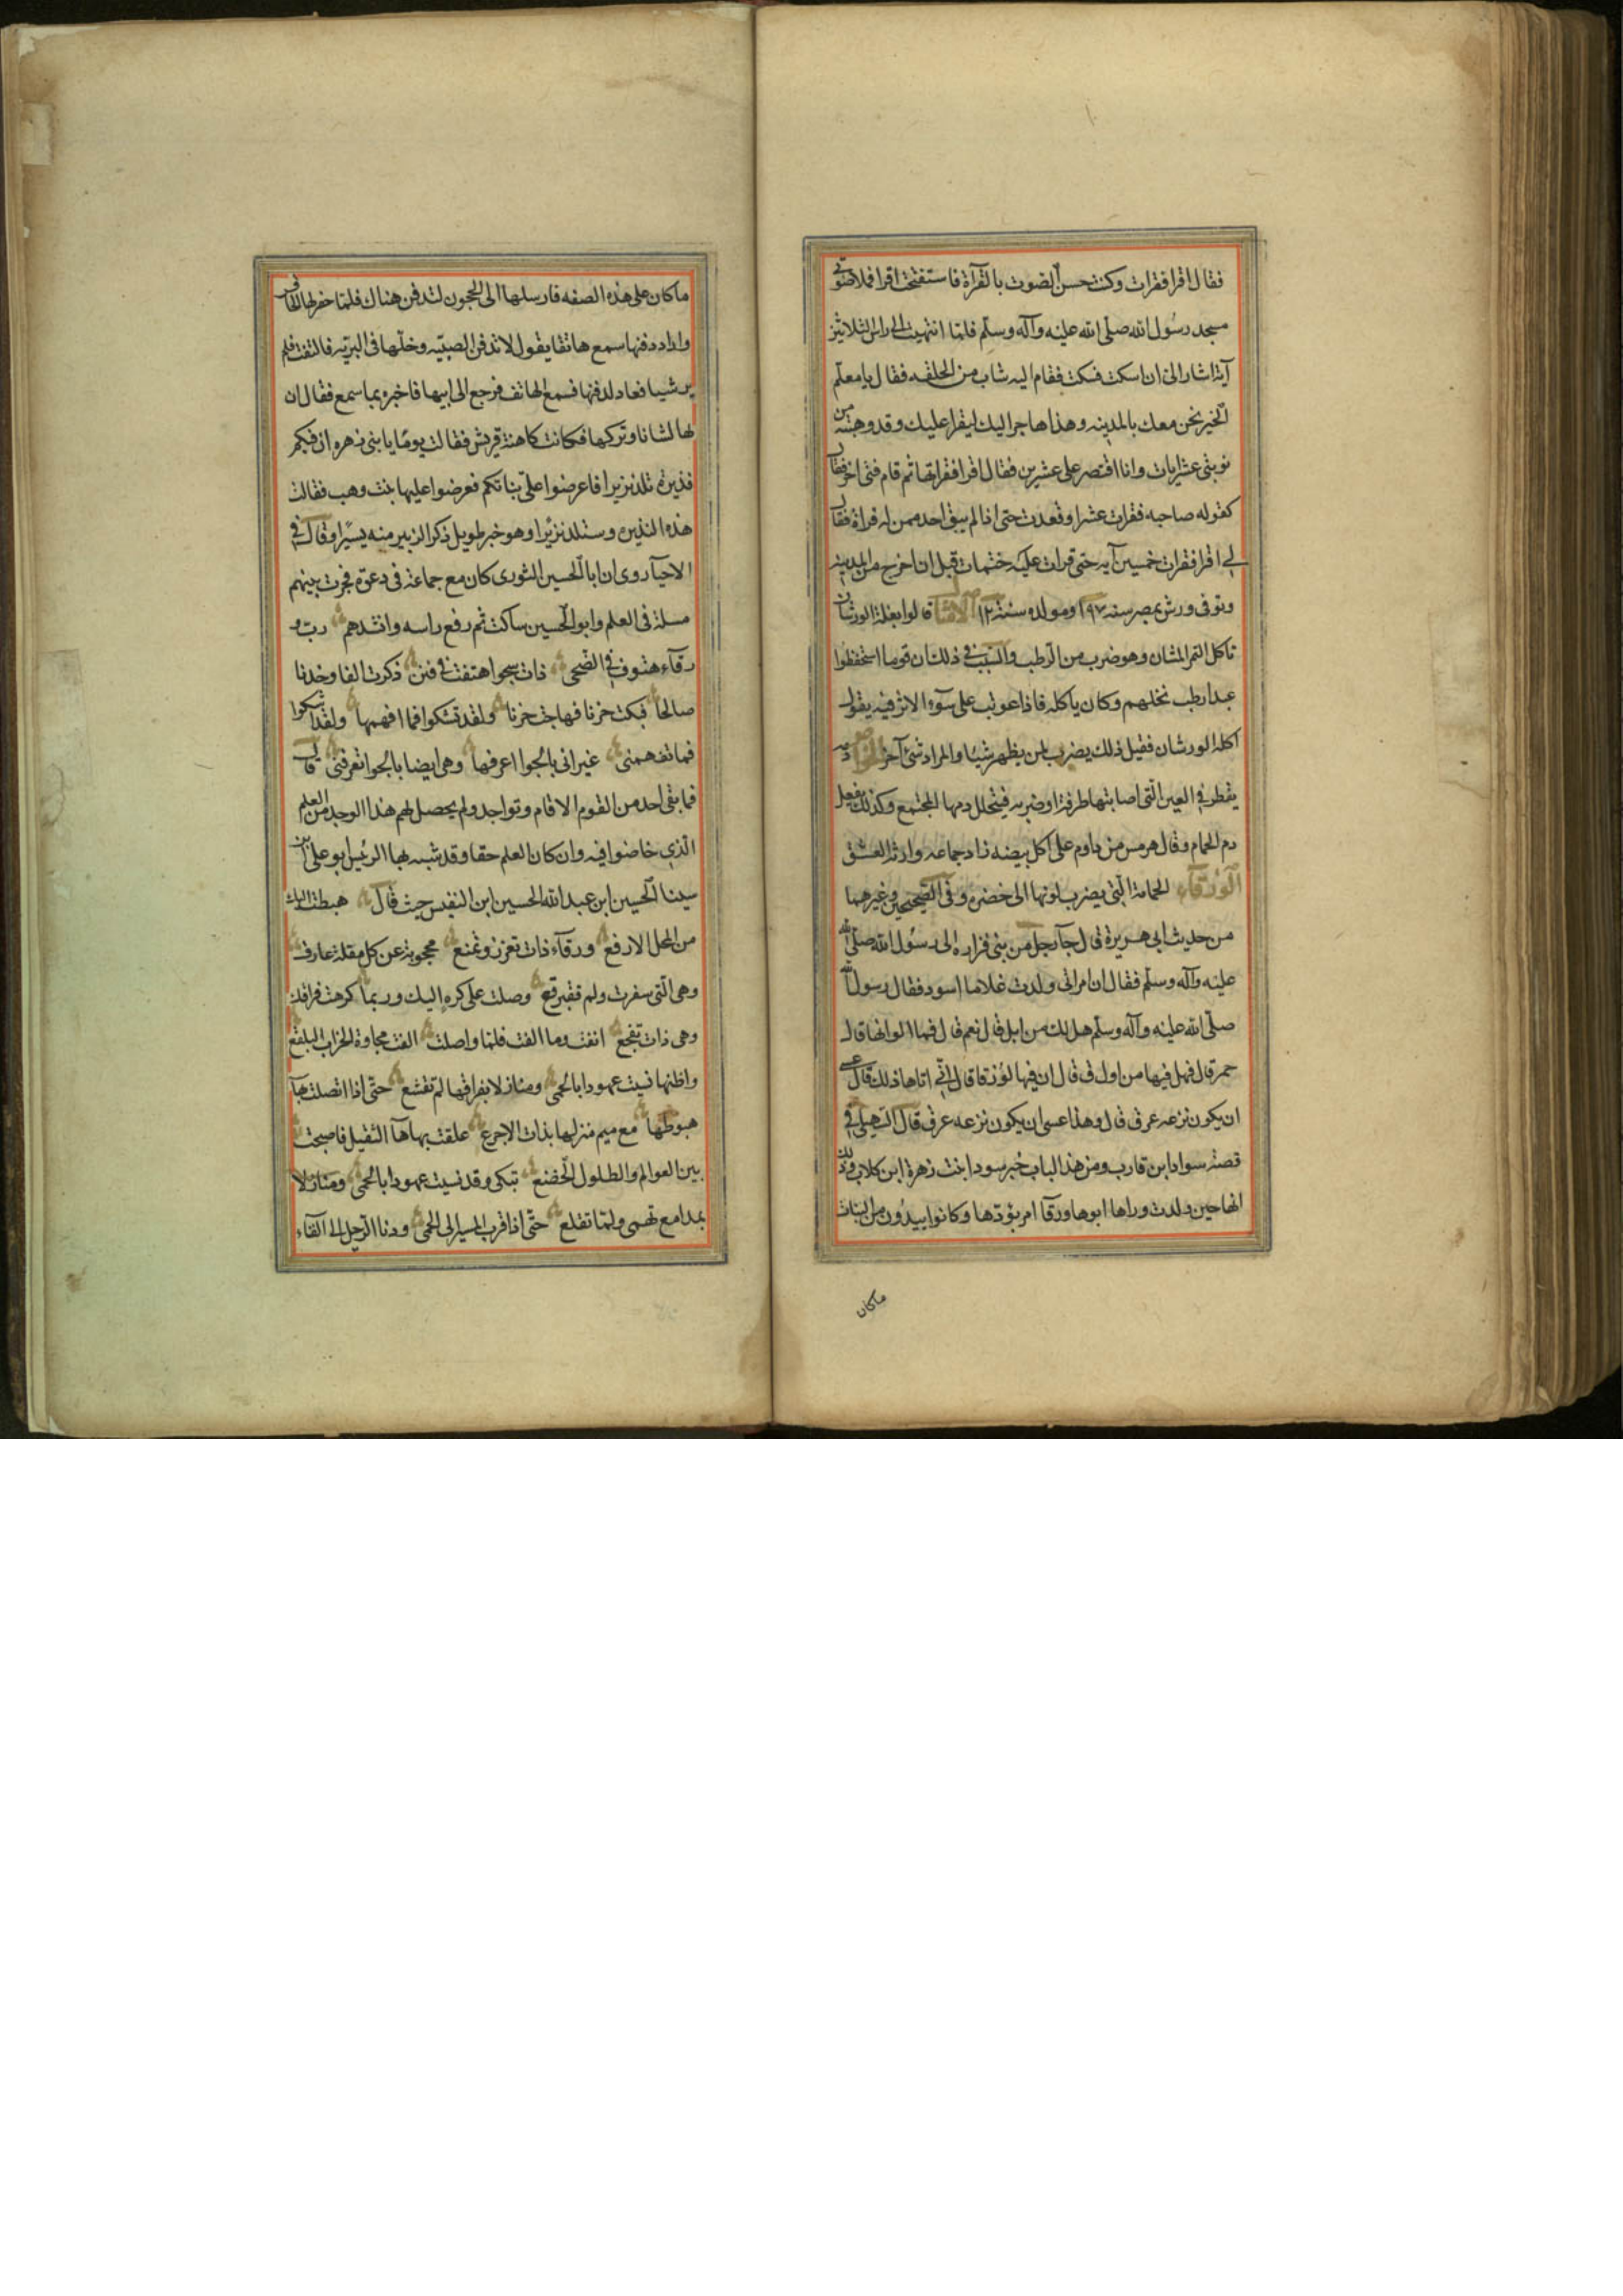 فقال اقرا فقرات وكنت حسن الصوت بالقرآة فاستفتحت اقرا فملا صوتى
مسجد رسول الله صلى الله عليه وآله وسلم فلما انتهيت الى راس الثلاثين
آية اشار الى ان اسكت فسكت فقام اليه شاب من الحلقه فقال يا معلم
الخير نحن معك بالمدينه وهذا هاجر اليك ليقرا عليك وقد وهبته من
نوبتى عشر ايات وانا اقتصر على عشرين فقال اقرا فقراتها ثم قام فتى اخر فقال
كقوله صاحبه فقرات عشرا وقعدت حتى اذا لم يبق احد ممن له قراة فقال
لى اقرا فقرات خمسين آيه حتى قرات عليه ختمات قبل ان اخرج من المدينه
وتوفى ورش بمصر سنه ١٩٧ ومولده سنة ١٢ الامثال قالوا بعلة الورشان
تاكل التمر المشان وهو ضرب من الرطب والسبب فى ذلك ان قوما استحفظوا
عبدا رطب نخلهم وكان ياكله فاذا عوتب على سوء الاثر فيه يقول
اكله الورشان فقيل ذلك يضرب لمن يظهر شيئا والمراد شئ آخر الخواص دمه
يقطر فى العين التى اصابتها طرفة او ضربه فيتحلل دمها المجتمع وكذلك يفعل
دم الحمام وقال هرمس من داوم على اكل بيضه زاد جماعه وارثه العشق
الورقاء الحمامة التى يضرب لونها الى خضره وفى الصحيحين وغيرهما
من حديث ابى هريرة قال جآ رجل من بنى فزاره الى رسول الله صلى الله
عليه وآله وسلم فقال ان امراتى ولدت غلاما اسود فقال رسول الله
صلى الله عليه وآله وسلم هل لك من ابل قال نعم قال فما الوانها قال
حمر قال فهل فيها من اورق قال ان فيها لورقا قال انى اتاها ذلك قال عسى
ان يكون نزعه عرق قال وهذا عسى ان يكون نزعه عرق قال السهيلى فى
قصة سواد ابن قارب ومن هذا الباب خبر سودا بنت زهرة ابن كلاب وذلك
انها حين ولدت وراها ابوها ورقآ امر بؤدها وكانوا يبدون من البنات
ماكان
ما كان على هذه الصفه فارسلها الى الحجون لتدفن هناك فلما حفر لها الحافر
واراد دفنها سمع هاتفا يقول لا تدفن الصبيه وخلها فى البريه فالتفت فلم
ير شيا فعاد لدفنها فسمع الهاتف فرجع الى ابيها فاخبره بما سمع فقال ان
لها لشانا وتركها فكانت كاهنة قريش فقالت يوما يا بنى زهره ان فيكم
نذيرة تلد نزيرا فاعرضوا على بناتكم فعرضوا عليها بنت وهب فقالت
هذه النذيره وستلد نزيرا وهو خبر طويل ذكر الزبير منه يسيرا وقال فى
الاحيآ روى ان ابا الحسين النورى كان مع جماعة فى دعوة فجرت بينهم
مسلة فى العلم وابو الحسين ساكت ثم رفع راسه وانشدهم رب و
رقآء هتوف فى الضحى ذات شجوا هتفت فى فنن ذكرت الفا وخدنا
صالحا فبكت حزنا فهاجت حزنا ولقد تشكوا فما افهمها ولقد اشكوا
فما تفهمنى غير انى بالجوا اعرفها وهى ايضا بالجوا تعرفنى قال
فما بقى احد من القوم الا قام وتواجد ولم يحصل لهم هذا الوجد من العلم
الذى خاضوا فيه وان كان العلم حقا وقد شبه بها الرئيس ابو على ابن
سينا الحسين ابن عبد الله الحسين ابن النفيس حيث قال هبطت اليك
من المحل الارفع ورقآء ذات تعزز وتمنع محجوبة عن كل مقلة عارف
وهى التى سفرت ولم تتبرقع وصلت على كره اليك وربما كرهت فراقك
وهى ذات تفجع انفت وما الفت فلما واصلت الفت مجاوة الخراب البلقع
واظنها نسيت عهودا بالحمى ومنازلا بفراقها لم تقنع حتى اذا اتصلت بهآ
هبوطها مع ميم منزلها بذات الاجرع علقت بها هآ الثقيل فاصبحت
بين العوالم والطلول الخضع تبكى وقد نسيت عهودا بالحمى ومنازلا
بمدامع تهمى ولما تقلع حتى اذا قرب المسير الى الحمى ودنا الرحيل الى القآء